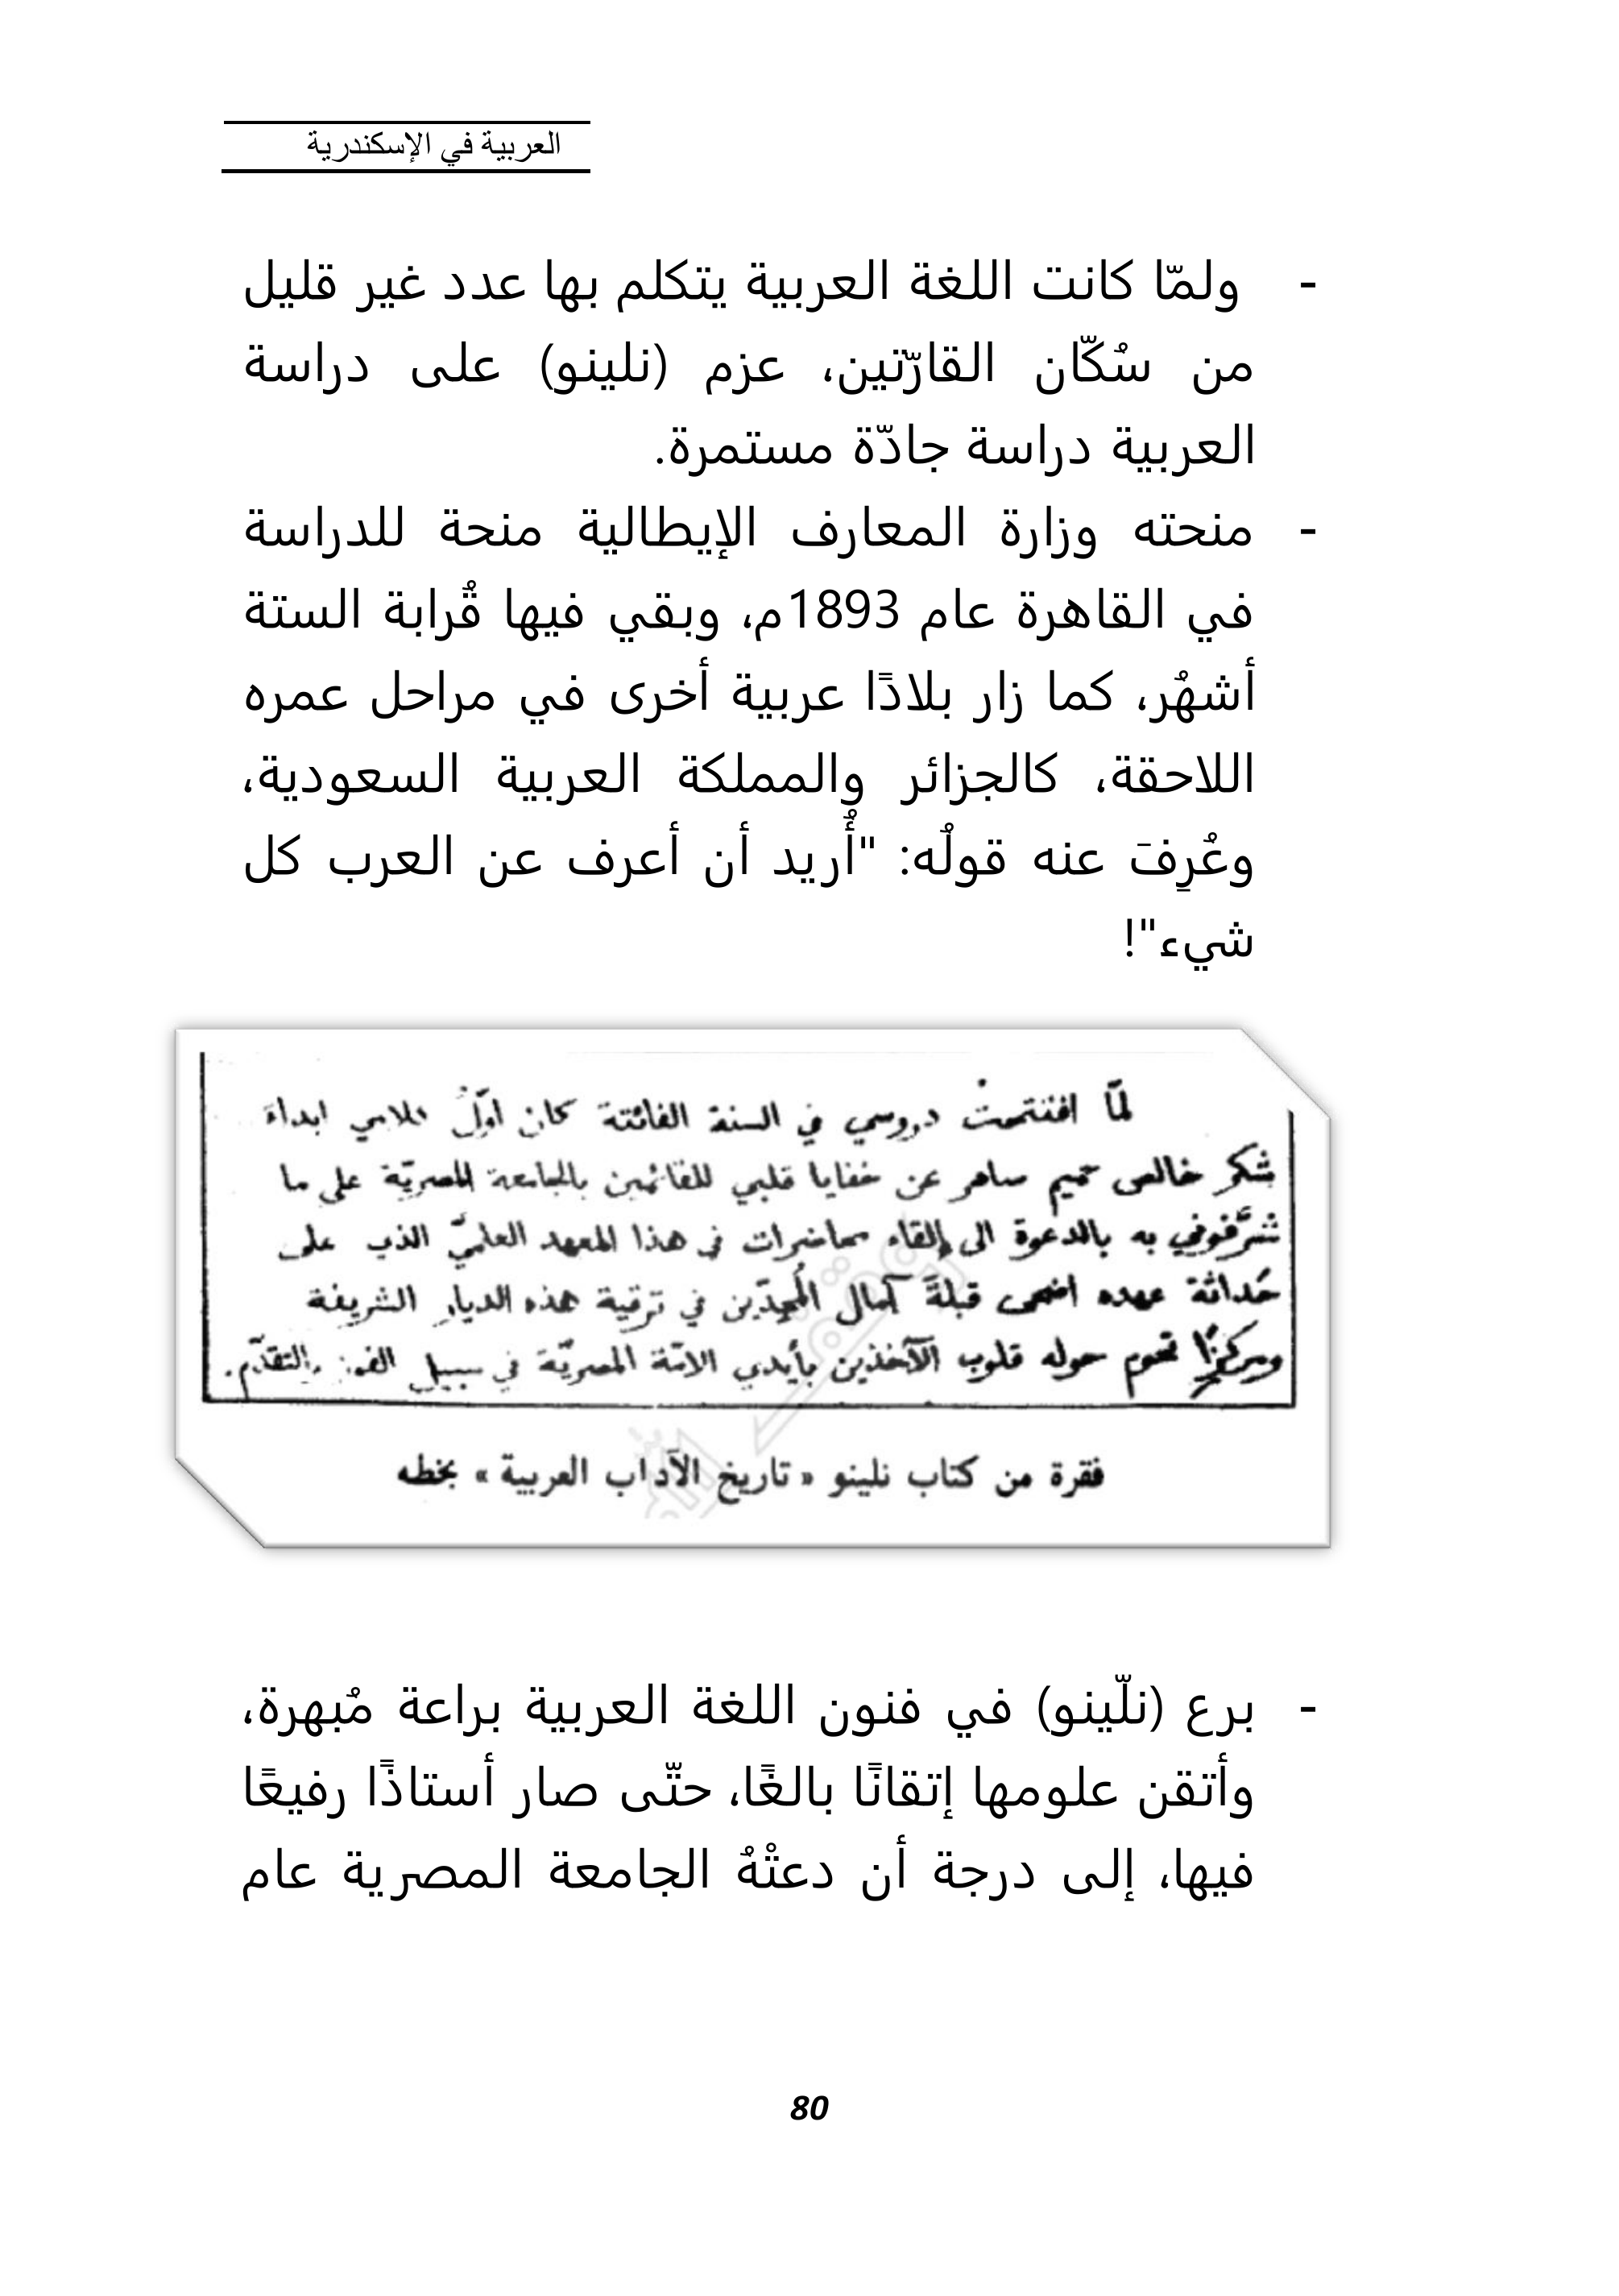 العربية في الإسكندرية
- ولمّا كانت اللغة العربية يتكلم بها عدد غير قليل
من سُكّان القارّتين، عزم (نلينو) على دراسة
العربية دراسة جادّة مستمرة.
- منحته وزارة المعارف الإيطالية منحة للدراسة
في القاهرة عام 1893م، وبقي فيها قُرابة الستة
أشهُر، كما زار بلادًا عربية أخرى في مراحل عمره
اللاحقة، كالجزائر والمملكة العربية السعودية،
وعُرِفَ عنه قولُه: "أُريد أن أعرف عن العرب كل
شيء"!
لمّا افتتحتُ دروسي في السنة الفائتة كان اوّلُ كلامي ابداء
شكر خالص حميم صادر عن خفايا قلبي للقائمين بالجامعة المصريّة على ما
شرّفوني به بالدعوة الى إلقاء محاضرات في هذا المعهد العلميّ الذي على
حَداثة عهده اضحى قبلةَ آمال المُجِدّين في ترقية هذه الديار الشريفة
ومركزًا تحوم حوله قلوب الآخذين بأيدي الامّة المصريّة في سبيل والتقدّم.
فقرة من كتاب نلينو « تاريخ الآداب العربية » بخطه
- برع (نلّينو) في فنون اللغة العربية براعة مُبهرة،
وأتقن علومها إتقانًا بالغًا، حتّى صار أستاذًا رفيعًا
فيها، إلى درجة أن دعتْهُ الجامعة المصرية عام
80